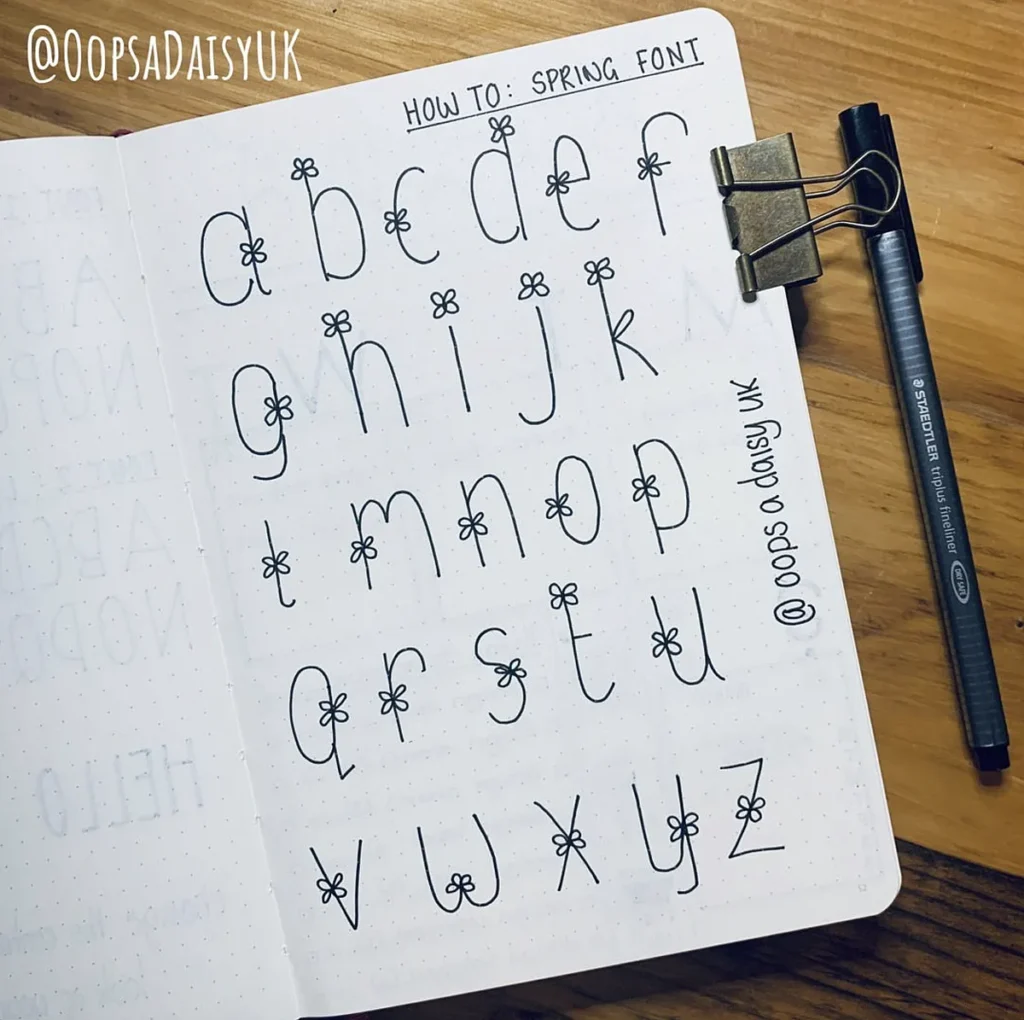 @OopsaDaisyUK
HOW TO: SPRING FONT
a b c d e f
g h i j k
l m n o p
q r s t u
v w x y z
@ oops a daisy UK
STAEDTLER triplus fineliner
DRY SAFE
HELLO